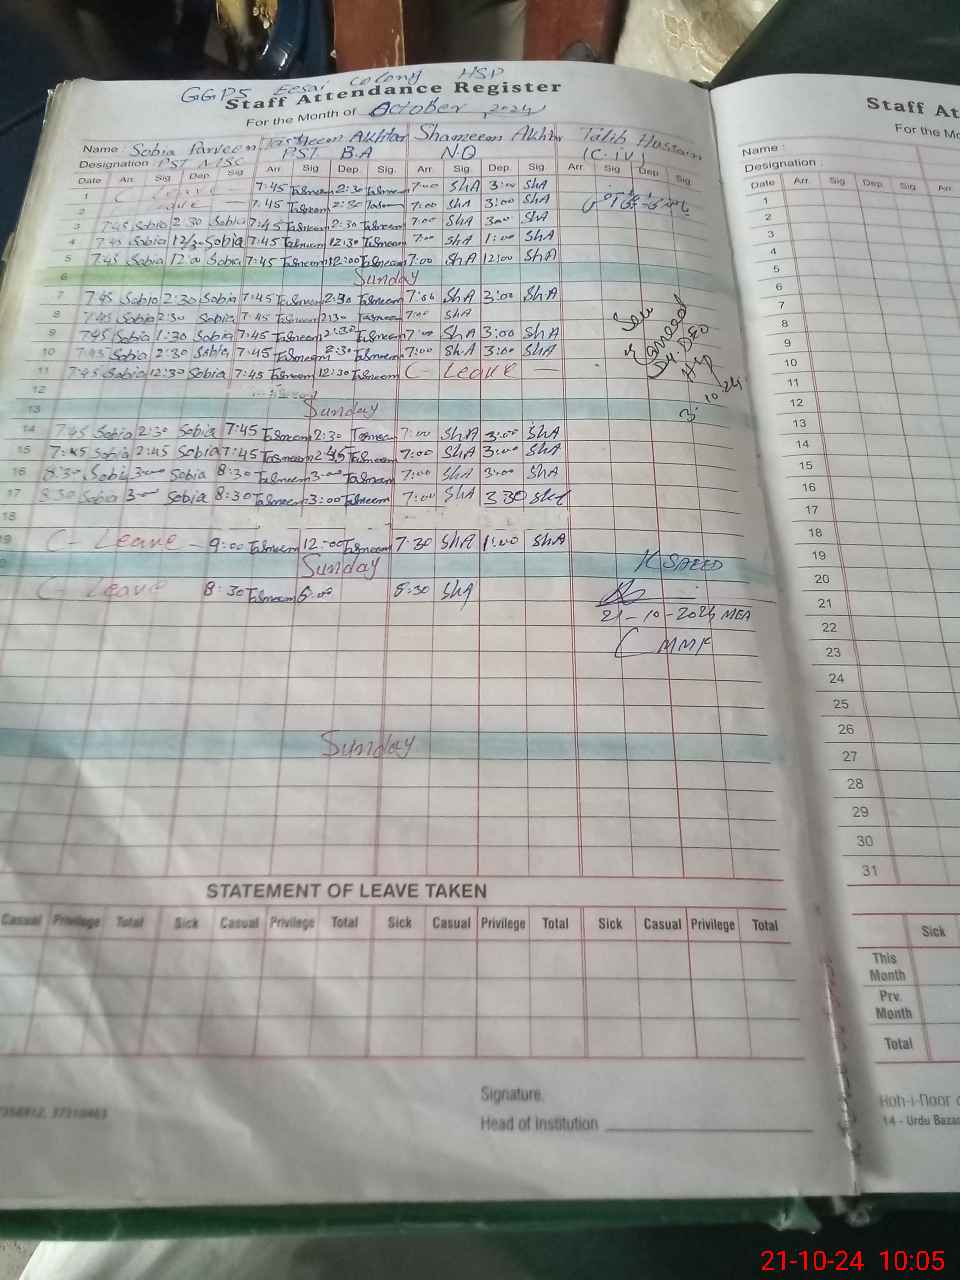 GGPS Eesai Colony HSP
Staff Attendance Register
For the Month of October, 2024
Name: Sobia Parveen Tasneem Akhtar Shameem Akhtar Talib Hussain
Designation: PST MSC PST B.A N.Q (C.iV)
Date Arr. Sig Dep. Sig Arr. Sig. Dep. Sig. Arr. Sig. Dep. Sig. Arr. Sig. Dep. Sig.
1 C Leave — 7:45 Tasneem 2:30 Tasneem 7:00 ShA 3:00 ShA
2 Leave — 7:45 Tasneem 2:30 7:00 ShA 3:00 ShA
3 7:45 Sobia 2:30 Sobia 7:45 Tasneem 2:30 Tasneem 7:00 ShA 3:00 ShA
4 7:45 Sobia 12/30 Sobia 7:45 Tasneem 12:30 Tasneem 7:00 ShA 1:00 ShA
5 7:45 Sobia 12:00 Sobia 7:45 Tasneem 12:00 Tasneem 7:00 ShA 12:00 ShA
6 Sunday
7 7:45 Sobia 2:30 Sobia 7:45 Tasneem 2:30 Tasneem 7:00 ShA 3:00 ShA
8 7:45 Sobia 2:30 Sobia 7:45 Tasneem 2:30 Tasneem 7:00 ShA
9 7:45 Sobia 1:30 Sobia 7:45 Tasneem 2:30 Tasneem 7:00 ShA 3:00 ShA
10 7:45 Sobia 2:30 Sobia 7:45 Tasneem 2:30 Tasneem 7:00 ShA 3:00 ShA
11 7:45 Sobia 12:30 Sobia 7:45 Tasneem 12:30 Tasneem C- Leave —
12
13 Sunday
14 7:45 Sobia 2:30 Sobia 7:45 Tasneem 2:30 Tasneem 7:00 ShA 3:00 ShA
15 7:45 Sobia 2:45 Sobia 7:45 Tasneem 2:45 Tasneem 7:00 ShA 3:00 ShA
16 8:30 Sobia 3:00 Sobia 8:30 Tasneem 3:00 Tasneem 7:00 ShA 3:00 ShA
17 8:30 Sobia 3:00 Sobia 8:30 Tasneem 3:00 Tasneem 7:00 ShA 3:30 ShA
18
19 C- Leave - 9:00 Tasneem 12:00 Tasneem 7:30 ShA 1:00 ShA
Sunday
C- Leave 8:30 Tasneem 8:30 ShA
Dy. DEO
K SAEED
21-10-2024 MEA
Sunday
STATEMENT OF LEAVE TAKEN
Casual Privilege Total Sick Casual Privilege Total Sick Casual Privilege Total Sick Casual Privilege Total
Signature.
Head of Institution
Staff At
For the Mo
Name :
Designation :
Date Arr. Sig Dep. Sig Arr
1
2
3
4
5
6
7
8
9
10
11
12
13
14
15
16
17
18
19
20
21
22
23
24
25
26
27
28
29
30
31
Sick
This Month
Prv. Month
Total
Koh-i-Noor
14 - Urdu Bazar
21-10-24 10:05